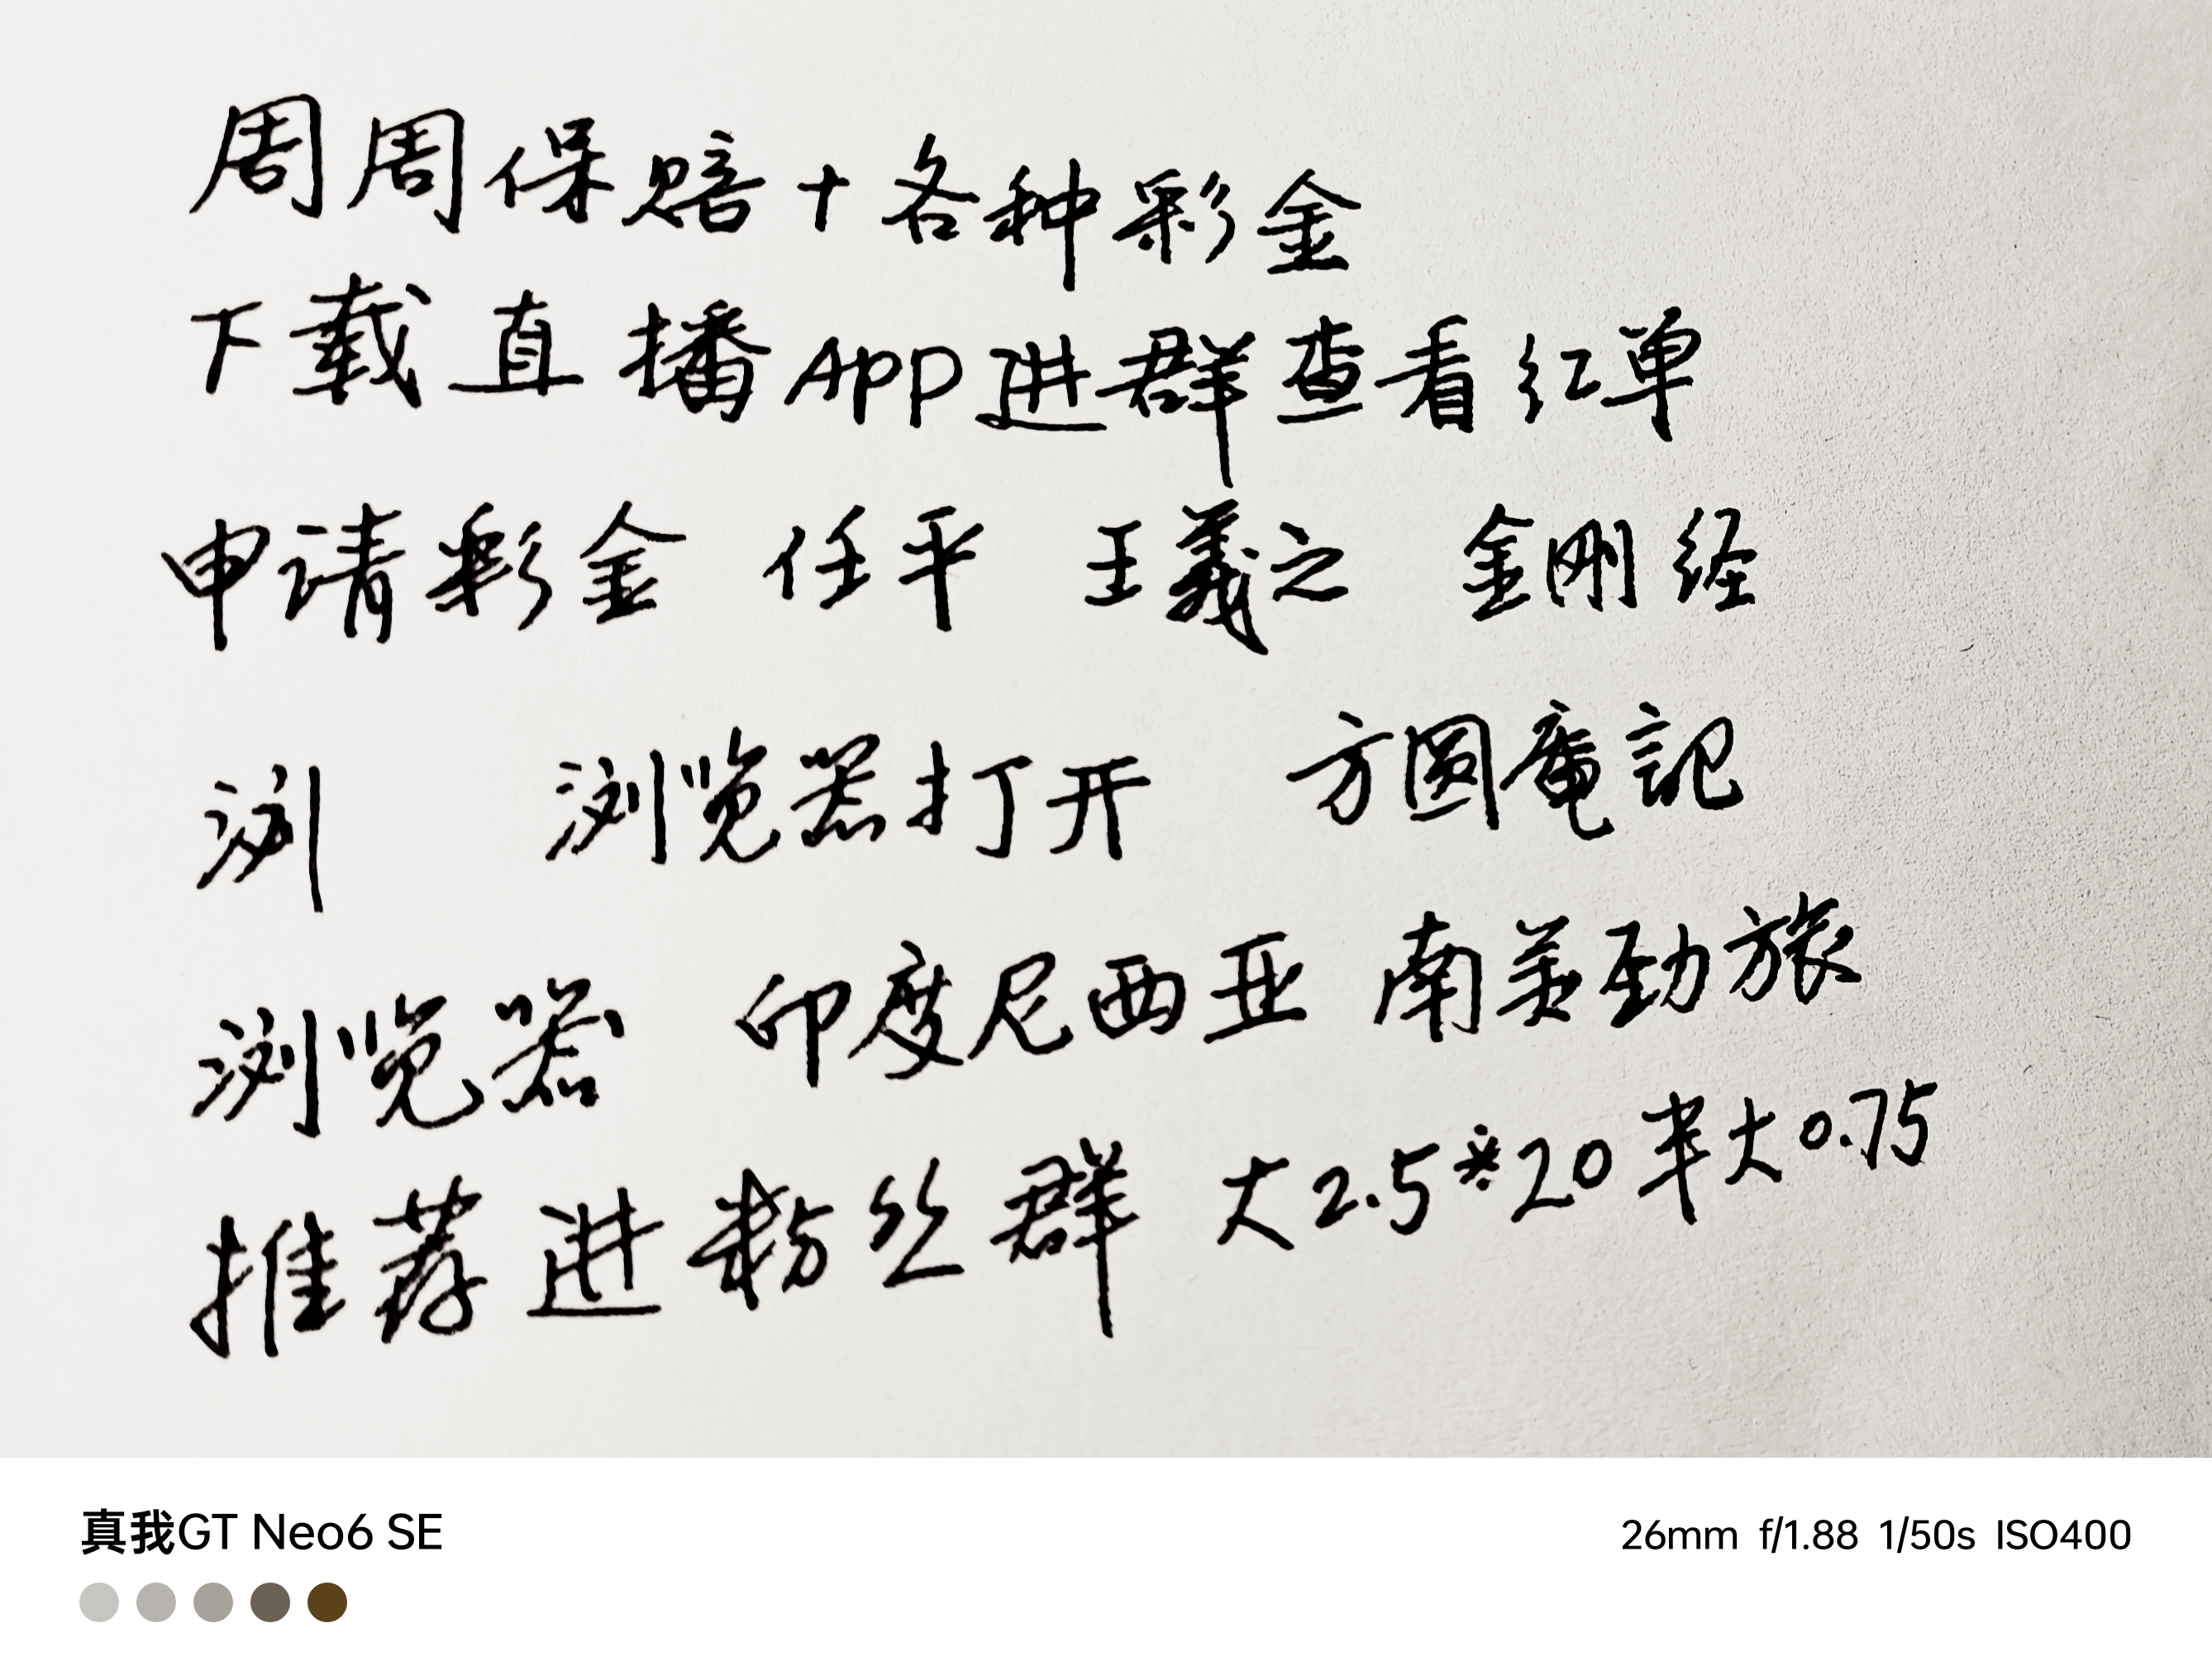 周周保赔+各种彩金
下载直播APP进群查看红单
申请彩金 任平 王羲之 金刚经
浏 浏览器打开 方圆庵記
浏览器 印度尼西亚 南美劲旅
推荐进粉丝群 大2.5*20 半大0.75
真我GT Neo6 SE 26mm f/1.88 1/50s ISO400